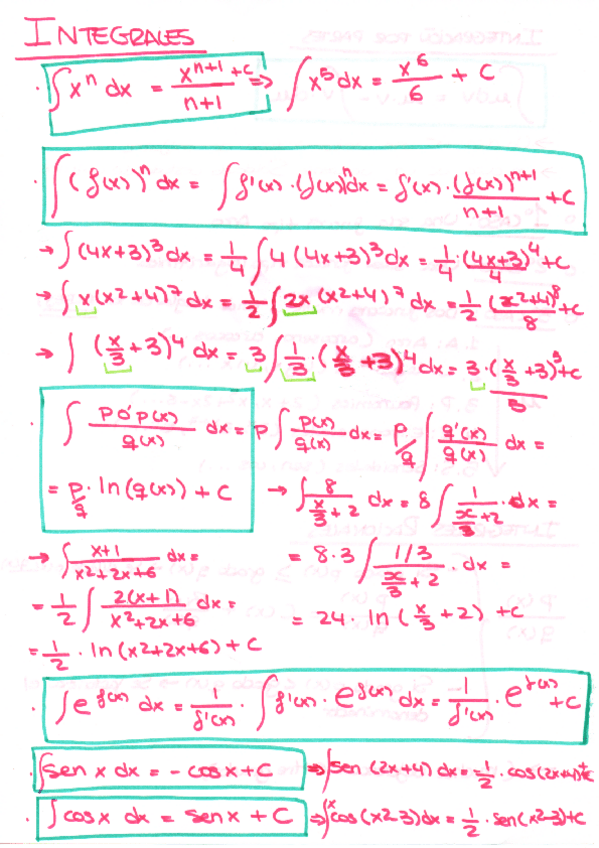 INTEGRALES
· ∫ xⁿ dx = xⁿ⁺¹/(n+1) + C ⇒ ∫ x⁵ dx = x⁶/6 + C
· ∫ (f(x))ⁿ dx = ∫ f'(x) · (f(x))ⁿ dx = f'(x) · (f(x))ⁿ⁺¹/(n+1) + C
→ ∫ (4x+3)³ dx = 1/4 ∫ 4 (4x+3)³ dx = 1/4 · (4x+3)⁴/4 + C
→ ∫ x (x²+4)⁷ dx = 1/2 ∫ 2x (x²+4)⁷ dx = 1/2 (x²+4)⁸/8 + C
→ ∫ (x/3 + 3)⁴ dx = 3 ∫ 1/3 · (x/3 + 3)⁴ dx = 3 · (x/3 + 3)⁵/5 + C
· ∫ (p o' p(x))/q(x) dx = p ∫ p(x)/q(x) dx = p/q ∫ q'(x)/q(x) dx =
= p/q · ln (q(x)) + C → ∫ 8/(x/3 + 2) dx = 8 ∫ 1/(x/3 + 2) · dx =
→ ∫ (x+1)/(x²+2x+6) dx = = 8·3 ∫ (1/3)/(x/3 + 2) · dx =
= 1/2 ∫ 2(x+1)/(x²+2x+6) dx = = 24 · ln (x/3 + 2) + C
= 1/2 · ln (x²+2x+6) + C
· ∫ e^f(x) dx = 1/f'(x) · ∫ f'(x) · e^f(x) dx = 1/f'(x) · e^f(x) + C
· ∫ sen x dx = - cos x + C ⇒ ∫ sen (2x+4) dx = -1/2 · cos (2x+4) + C
· ∫ cos x dx = sen x + C ⇒ ∫ x cos (x²-3) dx = 1/2 · sen (x²-3) + C